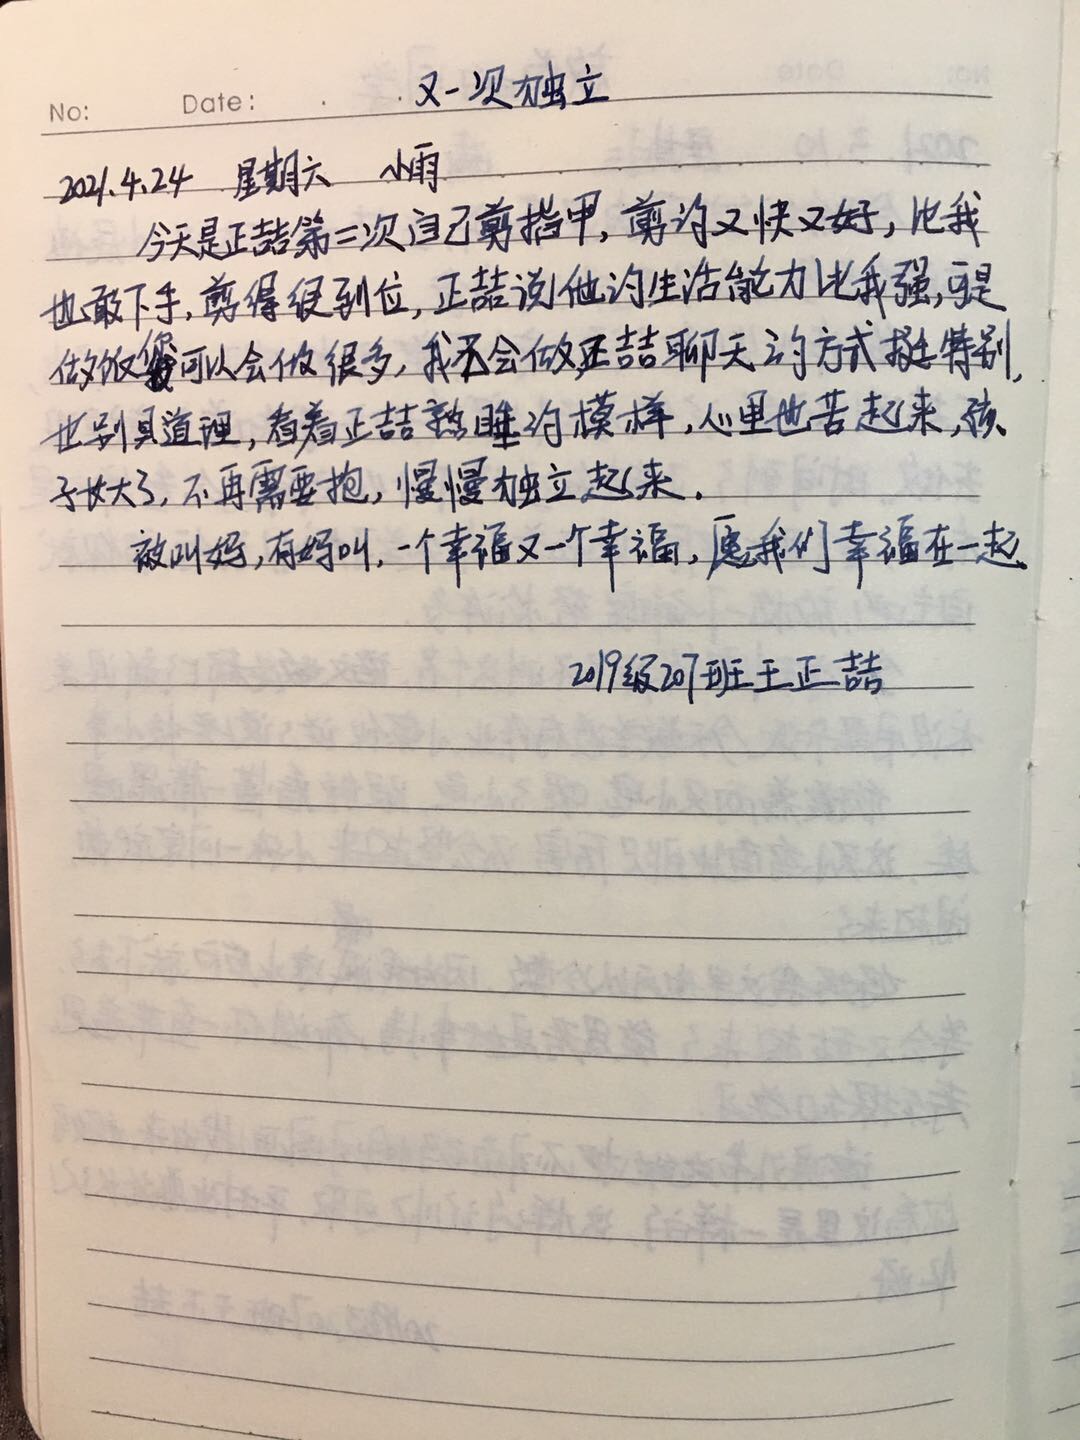 No: Date: 又一次独立
2021.4.24 星期六 小雨
今天是正喆第二次自己剪指甲,剪的又快又好,比我
也敢下手,剪得很到位,正喆说他的生活能力比我强,可是
做饭您可以会做很多,我不会做,正喆聊天的方式挺特别,
也别具道理,看着正喆熟睡的模样,心里也苦起来,孩
子长大了,不再需要抱,慢慢独立起来.
被叫妈,有妈叫,一个幸福又一个幸福,愿我们幸福在一起.
2019级207班王正喆